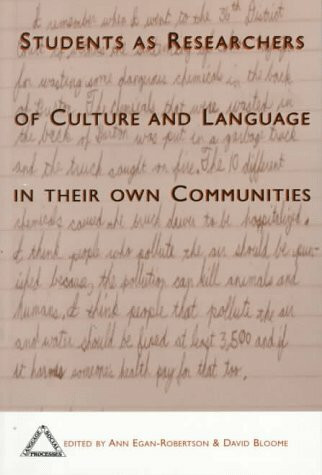 I remember when I went to the 36th District
STUDENTS AS RESEARCHERS
for wasting some dangerous chemicals in the back
of CULTURE AND LANGUAGE
the back of was put in a garbage truck
and the truck caught on fire. The 10 different
IN THEIR OWN COMMUNITIES
chemicals caused the truck driver to be hospitalized.
I think people who pollute the air should be pun-
ished because, the pollution can kill animals and
humans. I think people that pollute the air
and water should be fined at least 3,500 and if
it harms someones health pay for that too.
LANGUAGE & SOCIAL PROCESSES
EDITED BY ANN EGAN-ROBERTSON & DAVID BLOOME